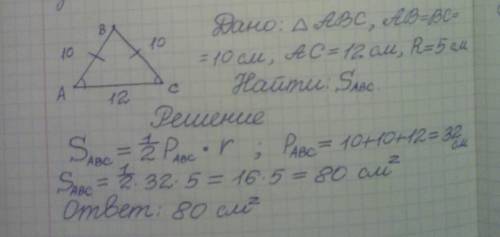 B
10
10
A
C
12
Дано: △ABC, AB=BC=
=10 см, AC=12 см, R=5 см
Найти: S_ABC.
Решение
S_ABC = 1/2 P_ABC · r ; P_ABC = 10+10+12=32 см
S_ABC = 1/2 · 32 · 5 = 16 · 5 = 80 см²
Ответ: 80 см²